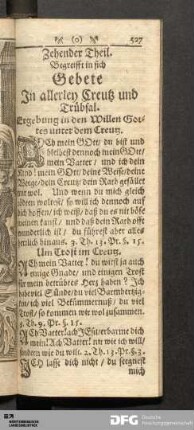 (o) 527
Zehender Theil.
Begreifft in sich
Gebete
In allerley Creutz und
Trübsal.
Ergebung in den Willen Got-
tes unter dem Creutz.
Ach mein GOtt / du bist und
bleibest dennoch mein GOtt/
mein Vatter / und ich dein
Kind! mein GOtt/ deine Weise/ deine
Wege/ dein Creutz/ dein Rath gefället
mir wol. Und wenn du mich gleich
tödten woltest/ so will ich dennoch auf
dich hoffen/ ich weiß/ daß du es nur böse
meinen kanst / und daß dein Rath offt
wunderlich ist / du führest aber alles
herrlich hinaus. 3. Th. 13. Pt. §. 15.
Um Trost im Creutz.
Ach mein Vatter! du wirst ja auch
einige Gnade / und einigen Trost
für mein betrübtes Hertz haben! Ich
habe viel Sünde/ du viel Barmhertzig-
keit/ ich viel Bekümmernuß/ du viel
Trost/ so kommen wir wol zusammen.
3. Th. 9. Pt. §. 15.
Ach Vatter! ach JEsu! erbarme dich
mein! Ach Vatter! nit wie ich will/
sondern wie du wilt. 2. Th. 13. Pt. §. 3.
Ich lasse dich nicht / du segnest
mich
DFG